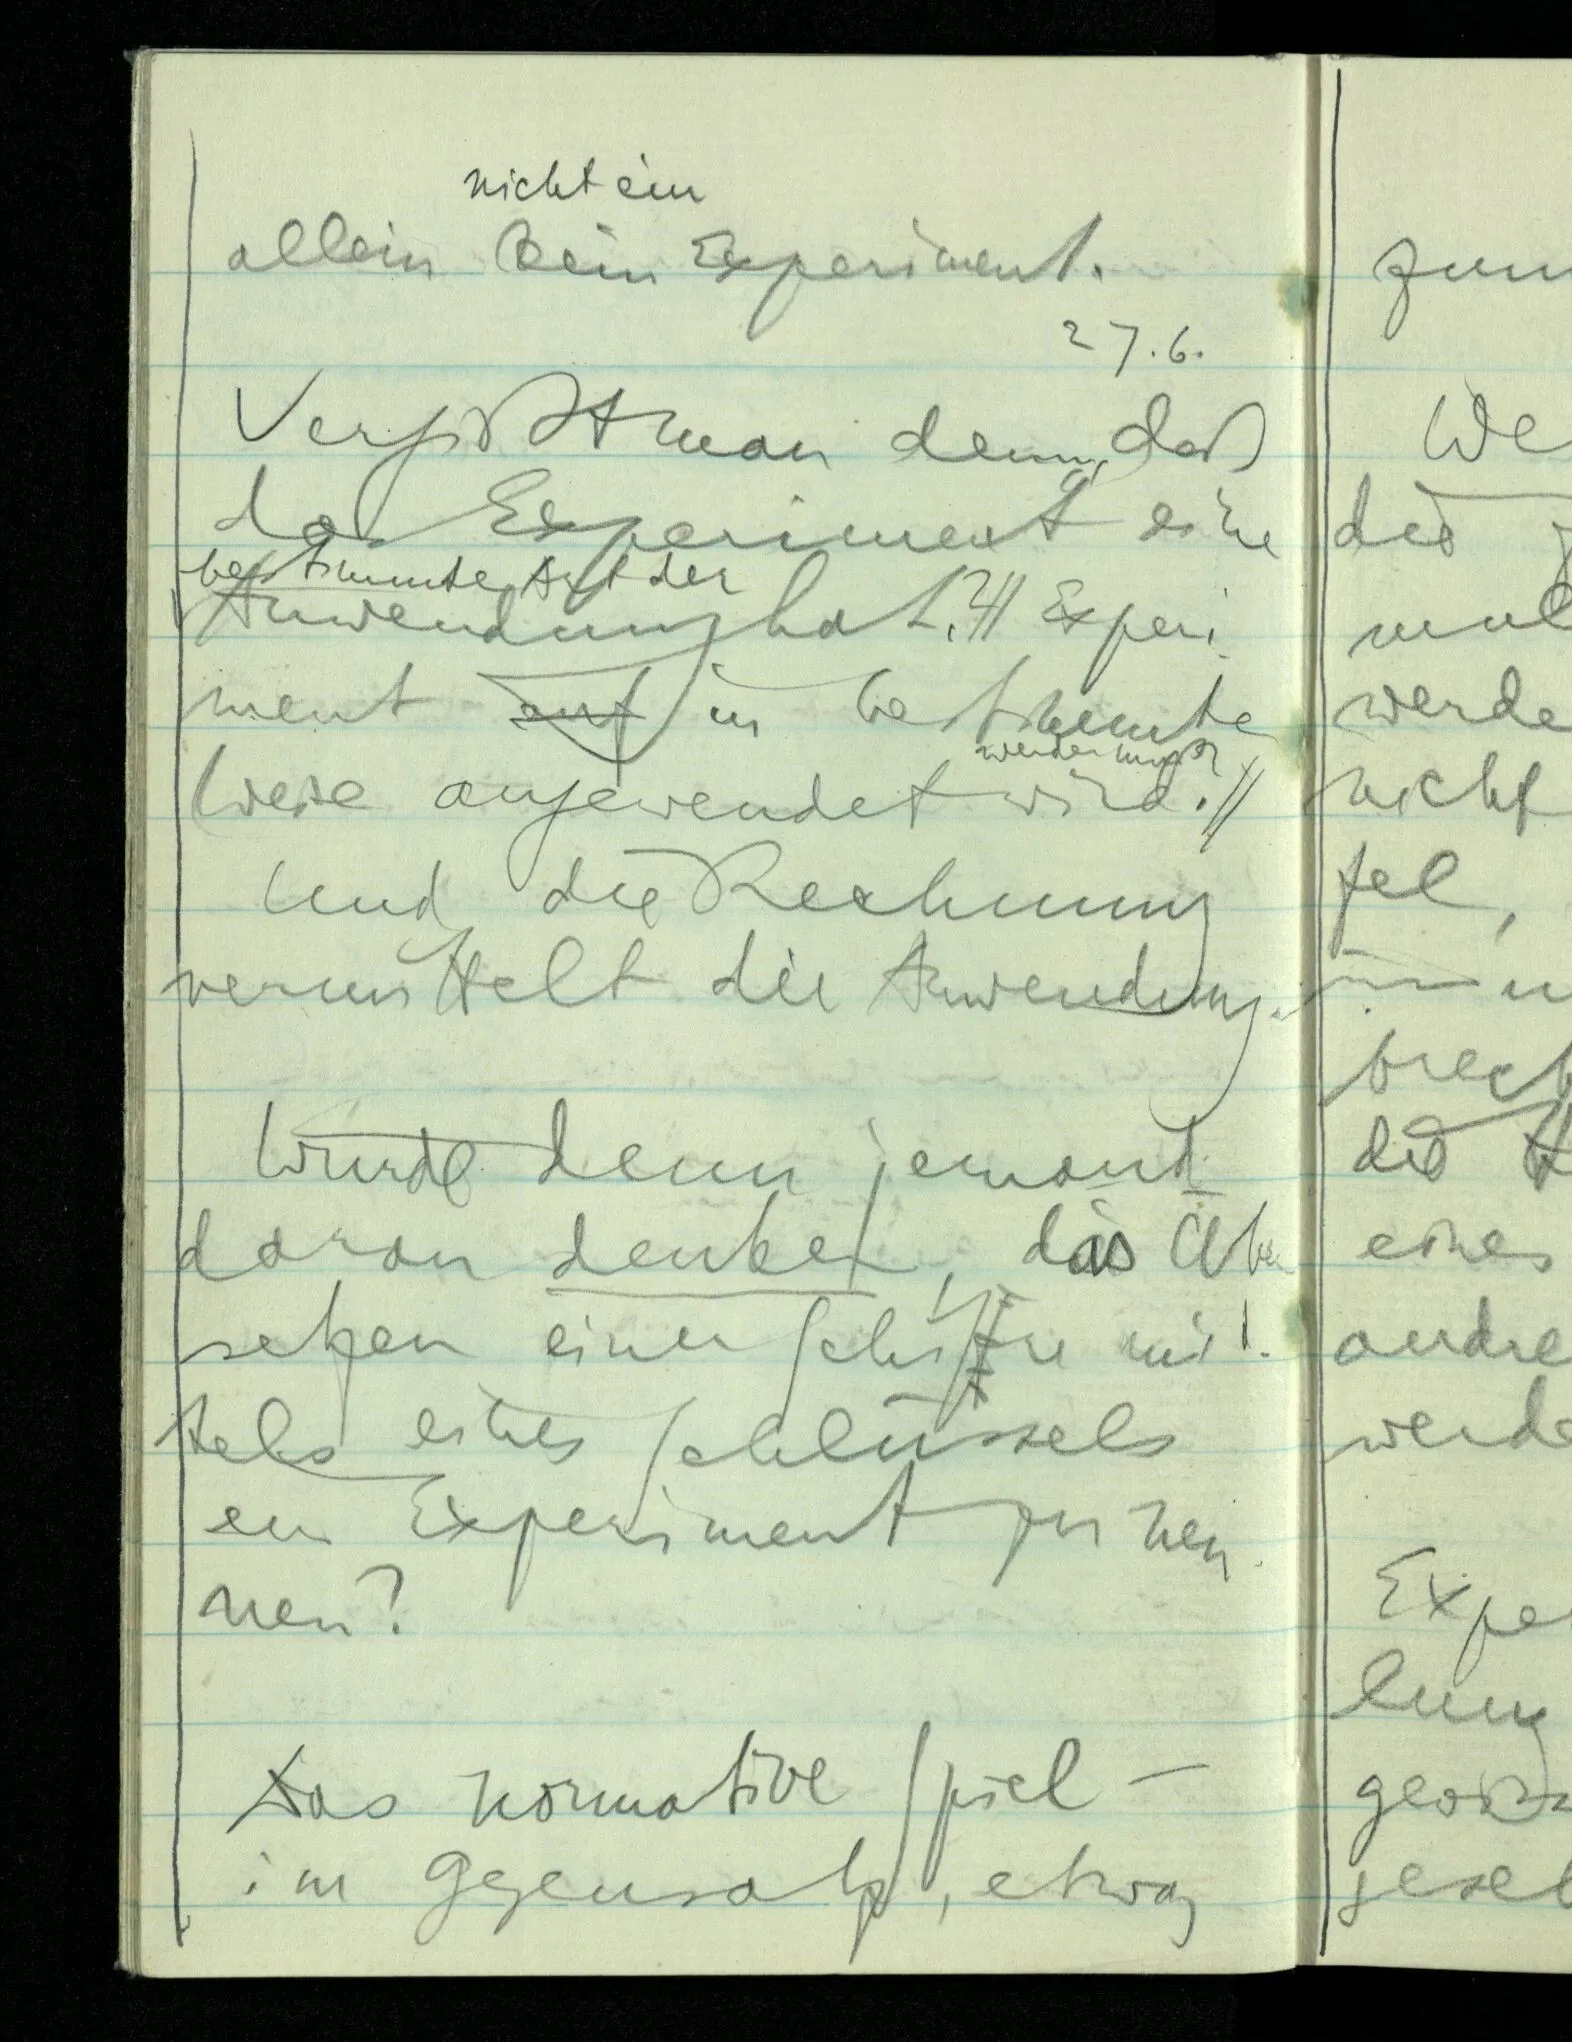 nicht ein
allein kein Experiment.
27.6.
Vergißt man denn, daß
das Experiment eine
bestimmte Art der
Anwendung hat? // Experi-
ment auf in bestimmte
werden muß?
Weise angewendet wird. //
Und die Rechnung
vermittelt die Anwendung.
Würde denn jemand
daran denken, das Über
setzen einer Schiffre mit-
tels eines Schlüssels
ein Experiment zu nen-
nen?
Das normative Spiel –
im Gegensatz, etwa,
zum
We
die
mul
werde
nicht
fel,
brech
die
eines
andre
werde
Exper
lung
gesel